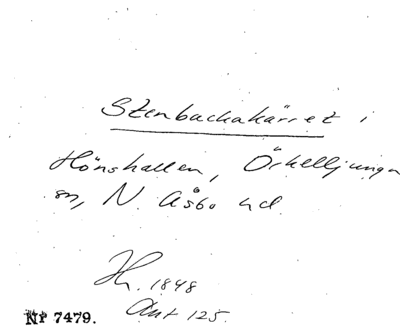 Stenbackakärret i
Hönshallen, Örkelljunga
sn, N. Åsbo hd.
Hn. 1848
Ant 125.
Nr 7479.